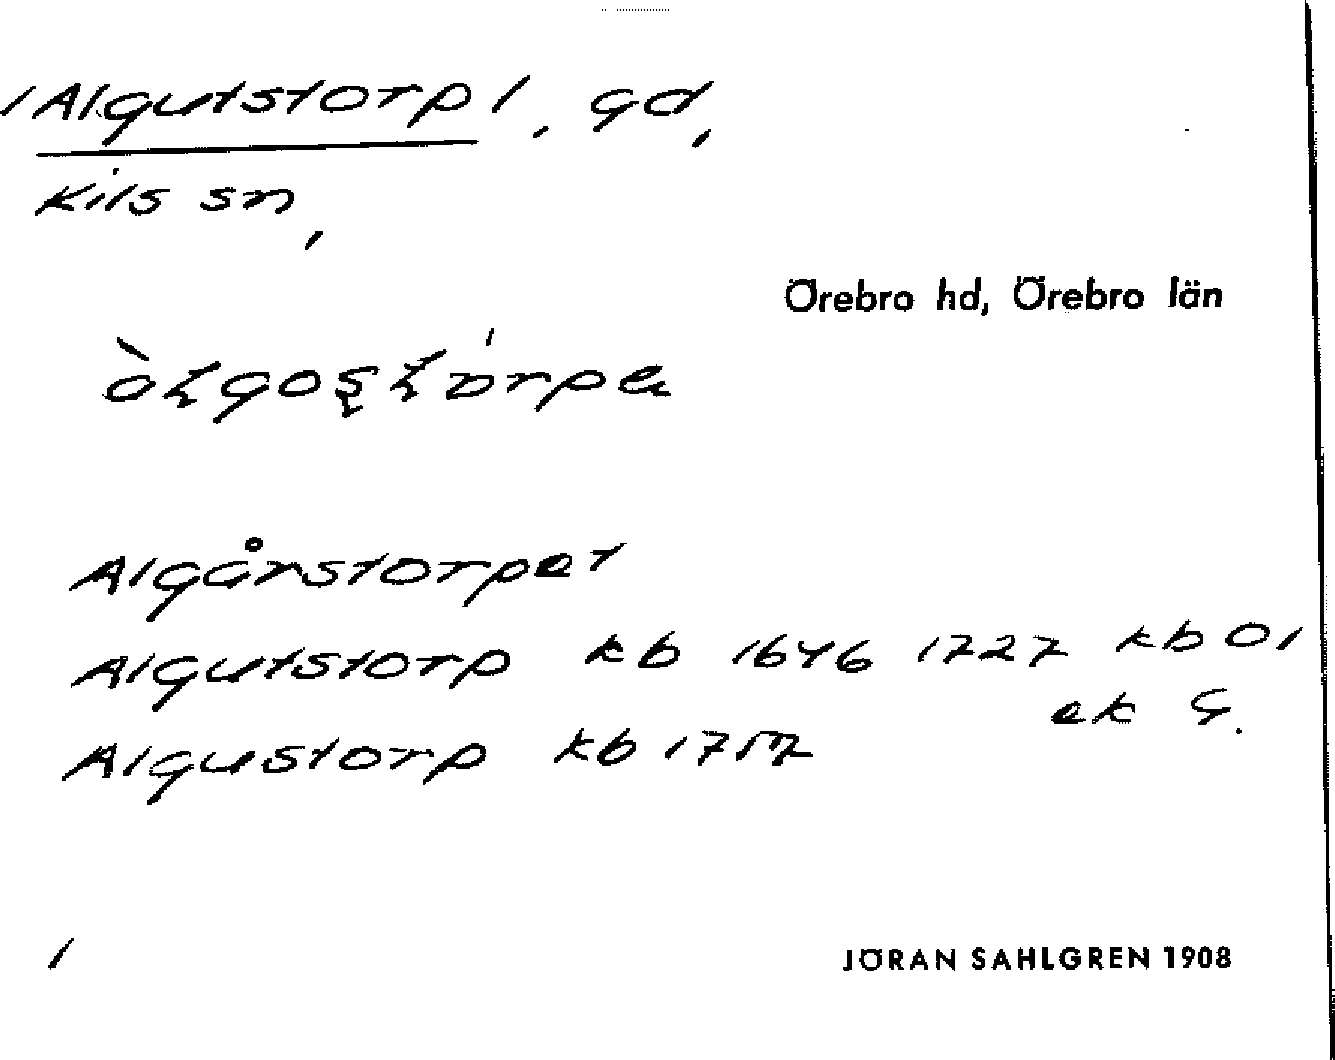 /Algutstorp/, gd,
Kils sn,
Örebro hd, Örebro län
Algårstorpet
Algutstorp kb 1646 1727 kb 01
ek G.
Algustorp kb
1
JÖRAN SAHLGREN 1908